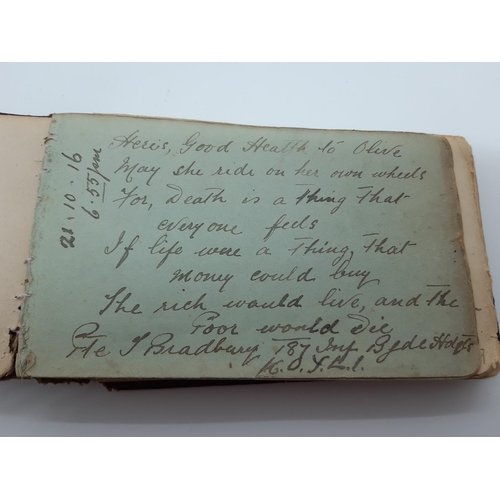 Heris, Good Health to Olive
May she ride on her own wheels
For, Death is a Thing that
everyone feels
If life were a Thing, that
money could buy
The rich would live, and the
Poor would Die
Pte S Bradbury 187 Inf. Bgde Hdqts
K.O.Y.L.I.
21.10.16
6.55 pm